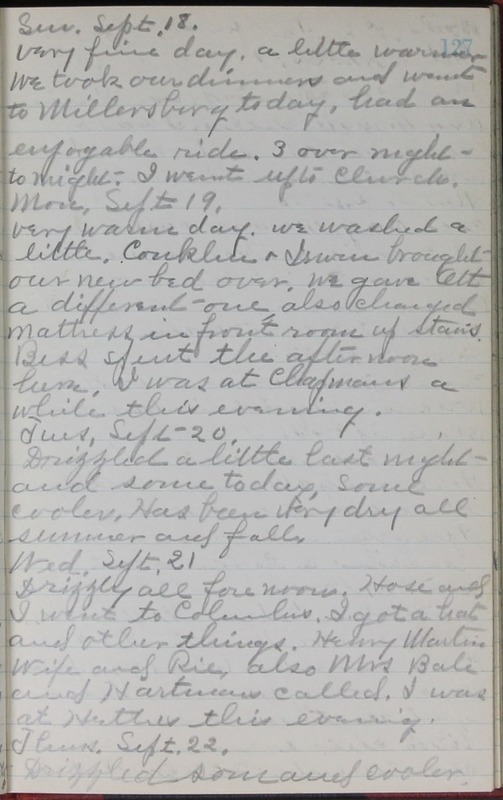 Sun. Sept. 18.
127
very fine day, a little warmer
we took our dinners and went
to Millersburg today, had an
enjoyable ride. 3 over night
to night. I went up to Church.
Mon, Sept 19.
very warm day. we washed a
little. Conklin & Irwin brought
our new bed over. we gave
a different one, also changed
mattress in front room up stairs.
Bess spent the afternoon
here, I was at Chapmans a
while this evening.
Tues, Sept 20.
Drizzled a little last night
and some today, some
cooler, Has been very dry all
summer and fall.
Wed. Sept. 21
Drizzly all fore noon. Hose and
I went to Columbus. I got a hat
and other things. Henry Martin
Wife and Rie, also Mrs Bale
and Hartman called. I was
at Hatties this evening.
Thurs. Sept. 22.
Drizzled som and cooler.